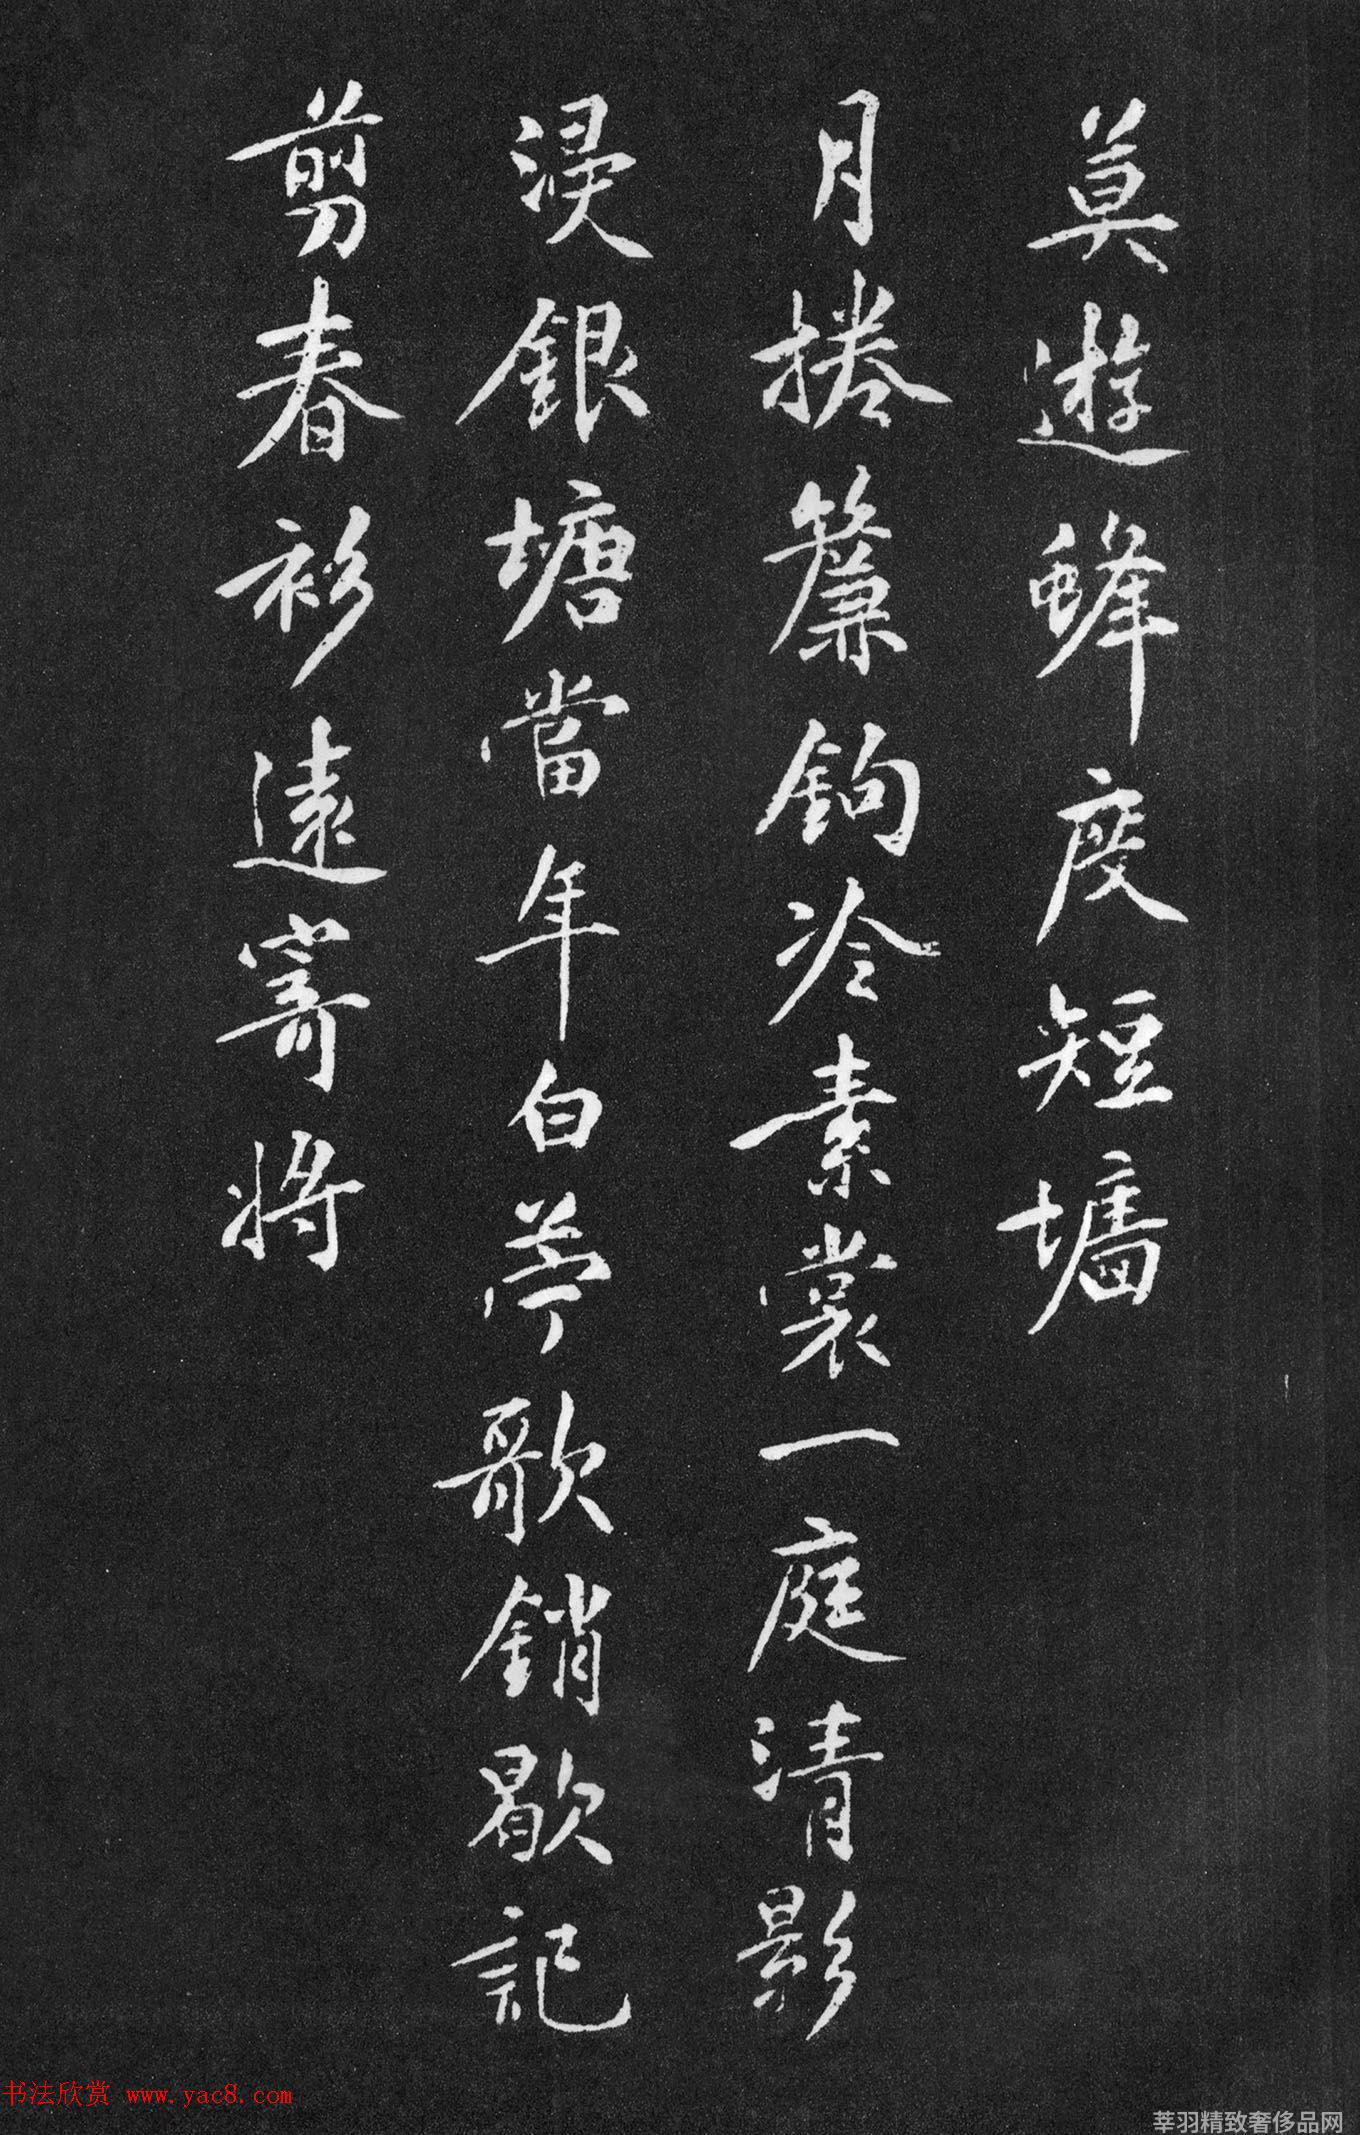 莫遊蜂度短墻
月捲簾鉤冷素裳一庭清影
浸銀塘當年白苧歌銷歇記
剪春衫遠寄將
书法欣赏 www.yac8.com
莘羽精致奢侈品网